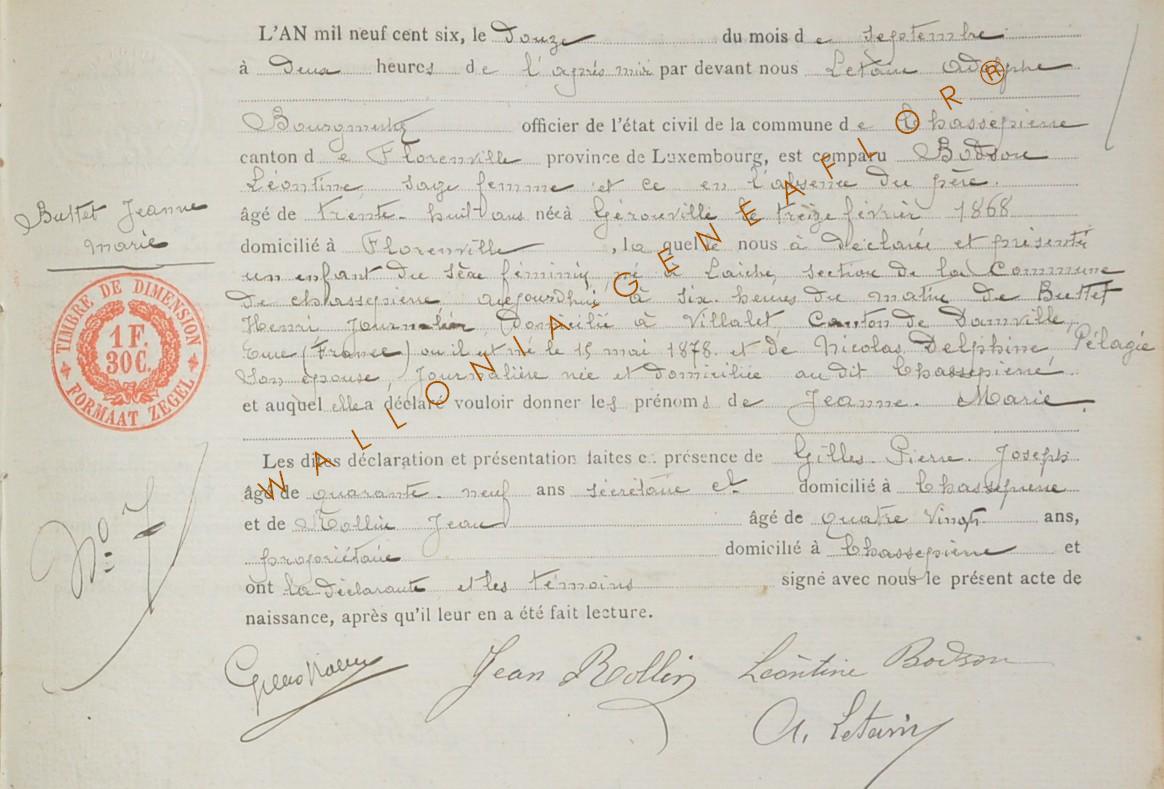 L'AN mil neuf cent six, le Douze du mois de septembre
à Deux heures de l'après midi par devant nous Letain Adolphe
Bourgmestre officier de l'état civil de la commune de Chassepierre
canton de Florenville province de Luxembourg, est comparu Bodson
Léontine sage femme et ce en l'absence du père.
Buttet Jeanne
marie
âgé de trente-huit ans née à Gérouville le treize février 1868
domicilié à Florenville, la quelle nous à déclarée et présenté
un enfant du sexe féminin, né à Laiche, section de la Commune
de chassepierre aujourdhui à six heures du matin de Buttet
Henri Journalier, Domicilié à Villalet, Canton de Damville,
Eure (France) ou il est né le 15 mai 1878 et de Nicolas Delphine Pélagie
Son épouse, Journalière née et domiciliée au dit Chassepierre
et auquel elle a déclaré vouloir donner les prénoms de Jeanne. Marie.
TIMBRE DE DIMENSION
1 F.
30C.
FORMAAT ZEGEL
Les dites déclaration et présentation faites en présence de Gilles Pierre Joseph
âgé de quarante-neuf ans secrétaire et domicilié à Chassepierre
et de Rollin Jean âgé de quatre vingt ans,
propriétaire domicilié à Chassepierre et
ont la déclarante et les témoins signé avec nous le présent acte de
naissance, après qu'il leur en a été fait lecture.
No 7
Jean Rollin Léontine Bodson
A. Letain
WALLONIA GENEAFLOR®